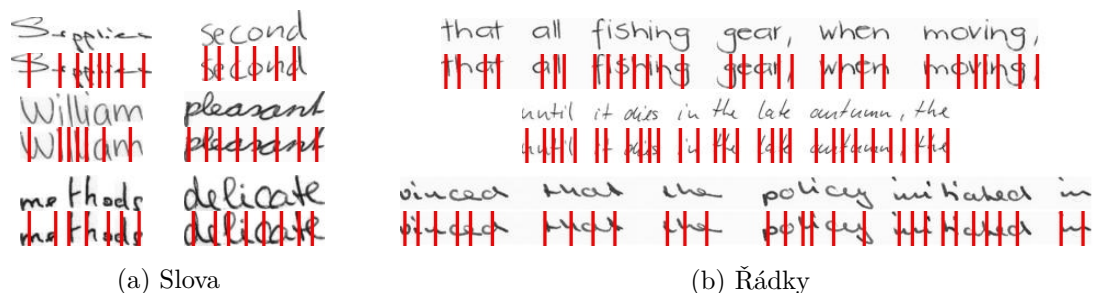 Supplies second
Supplies second
William pleasant
William pleasant
methods delicate
methods delicate
(a) Slova
that all fishing gear, when moving,
that all fishing gear, when moving,
until it dies in the late autumn, the
until it dies in the late autumn, the
vinced that the policy initiated in
vinced that the policy initiated in
(b) Řádky